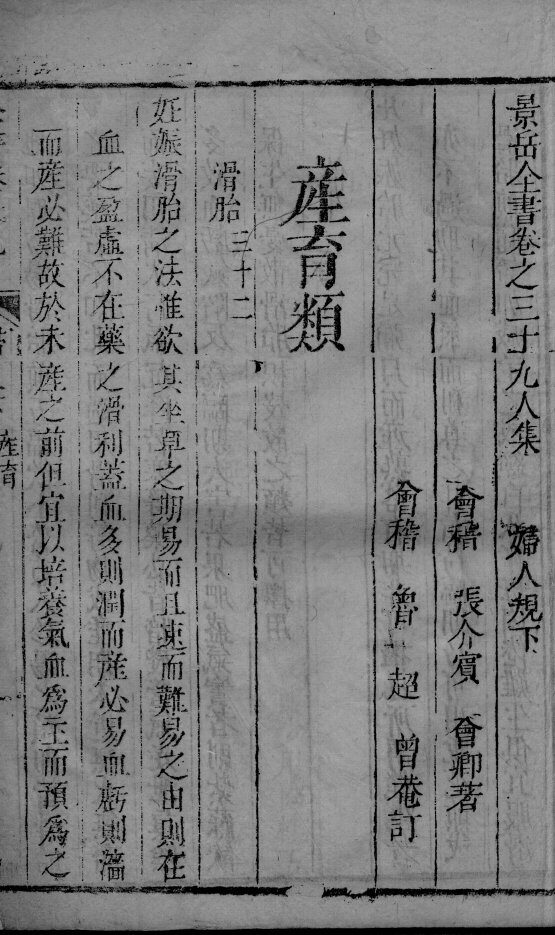 景岳全書卷之三十九人集 婦人規下
會稽 張介賓 會卿著
會稽 魯 超 曾菴訂
產育類
滑胎 三十二
妊娠滑胎之法惟欲其坐草之期易而且速而難易之由則在
血之盈虛不在藥之滑利蓋血多則潤而產必易血虧則濇
而產必難故於未產之前但宜以培養氣血爲主而預爲之
產育